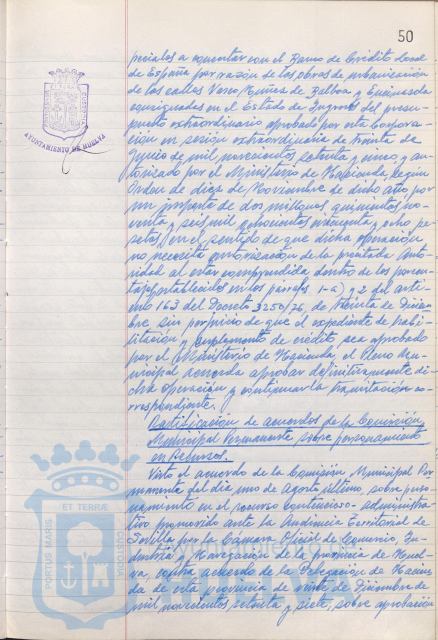 50
peciales a concertar con el Banco de Crédito Local
de España por razón de las obras de urbanización
de las calles Vasco Núñez de Balboa y Encinasola
consignadas en el Estado de Ingresos del presu-
puesto extraordinario aprobado por esta Corpora-
ción en sesión extraordinaria de treinta de
Junio de mil novecientos setenta y uno y au-
torizado por el Ministerio de Hacienda, según
Orden de diez de Noviembre de dicho año, por
un importe de dos millones quinientas no-
venta y seis mil ochocientas cincuenta y ocho pe-
setas, en el sentido de que dicha operación
no necesita autorización de la precitada Auto-
ridad al estar comprendida dentro de los porcen-
tajes establecidos en los párrafos 1-a) y 2 del artí-
culo 163 del Decreto 3250/76, de treinta de Diciem-
bre, sin perjuicio de que el expediente de habi-
litación y suplemento de crédito sea aprobado
por el Ministerio de Hacienda, el Pleno Mu-
nicipal acuerda aprobar definitivamente di-
cha operación y continuar la tramitación co-
rrespondiente.
Ratificación de acuerdos de la Comisión
Municipal Permanente sobre personamiento
en Recursos.
Visto el acuerdo de la Comisión Municipal Per-
manente del día uno de Agosto último, sobre perso-
namiento en el recurso contencioso-administra-
tivo promovido ante la Audiencia Territorial de
Sevilla por la Cámara Oficial de Comercio, In-
dustria y Navegación de la provincia de Huel-
va, contra acuerdo de la Delegación de Hacien-
da de esta provincia de veinte de Diciembre de
mil novecientos setenta y siete, sobre aprobación
AYUNTAMIENTO DE HUELVA
PORTUS MARIS
ET TERRÆ
CUSTODIA